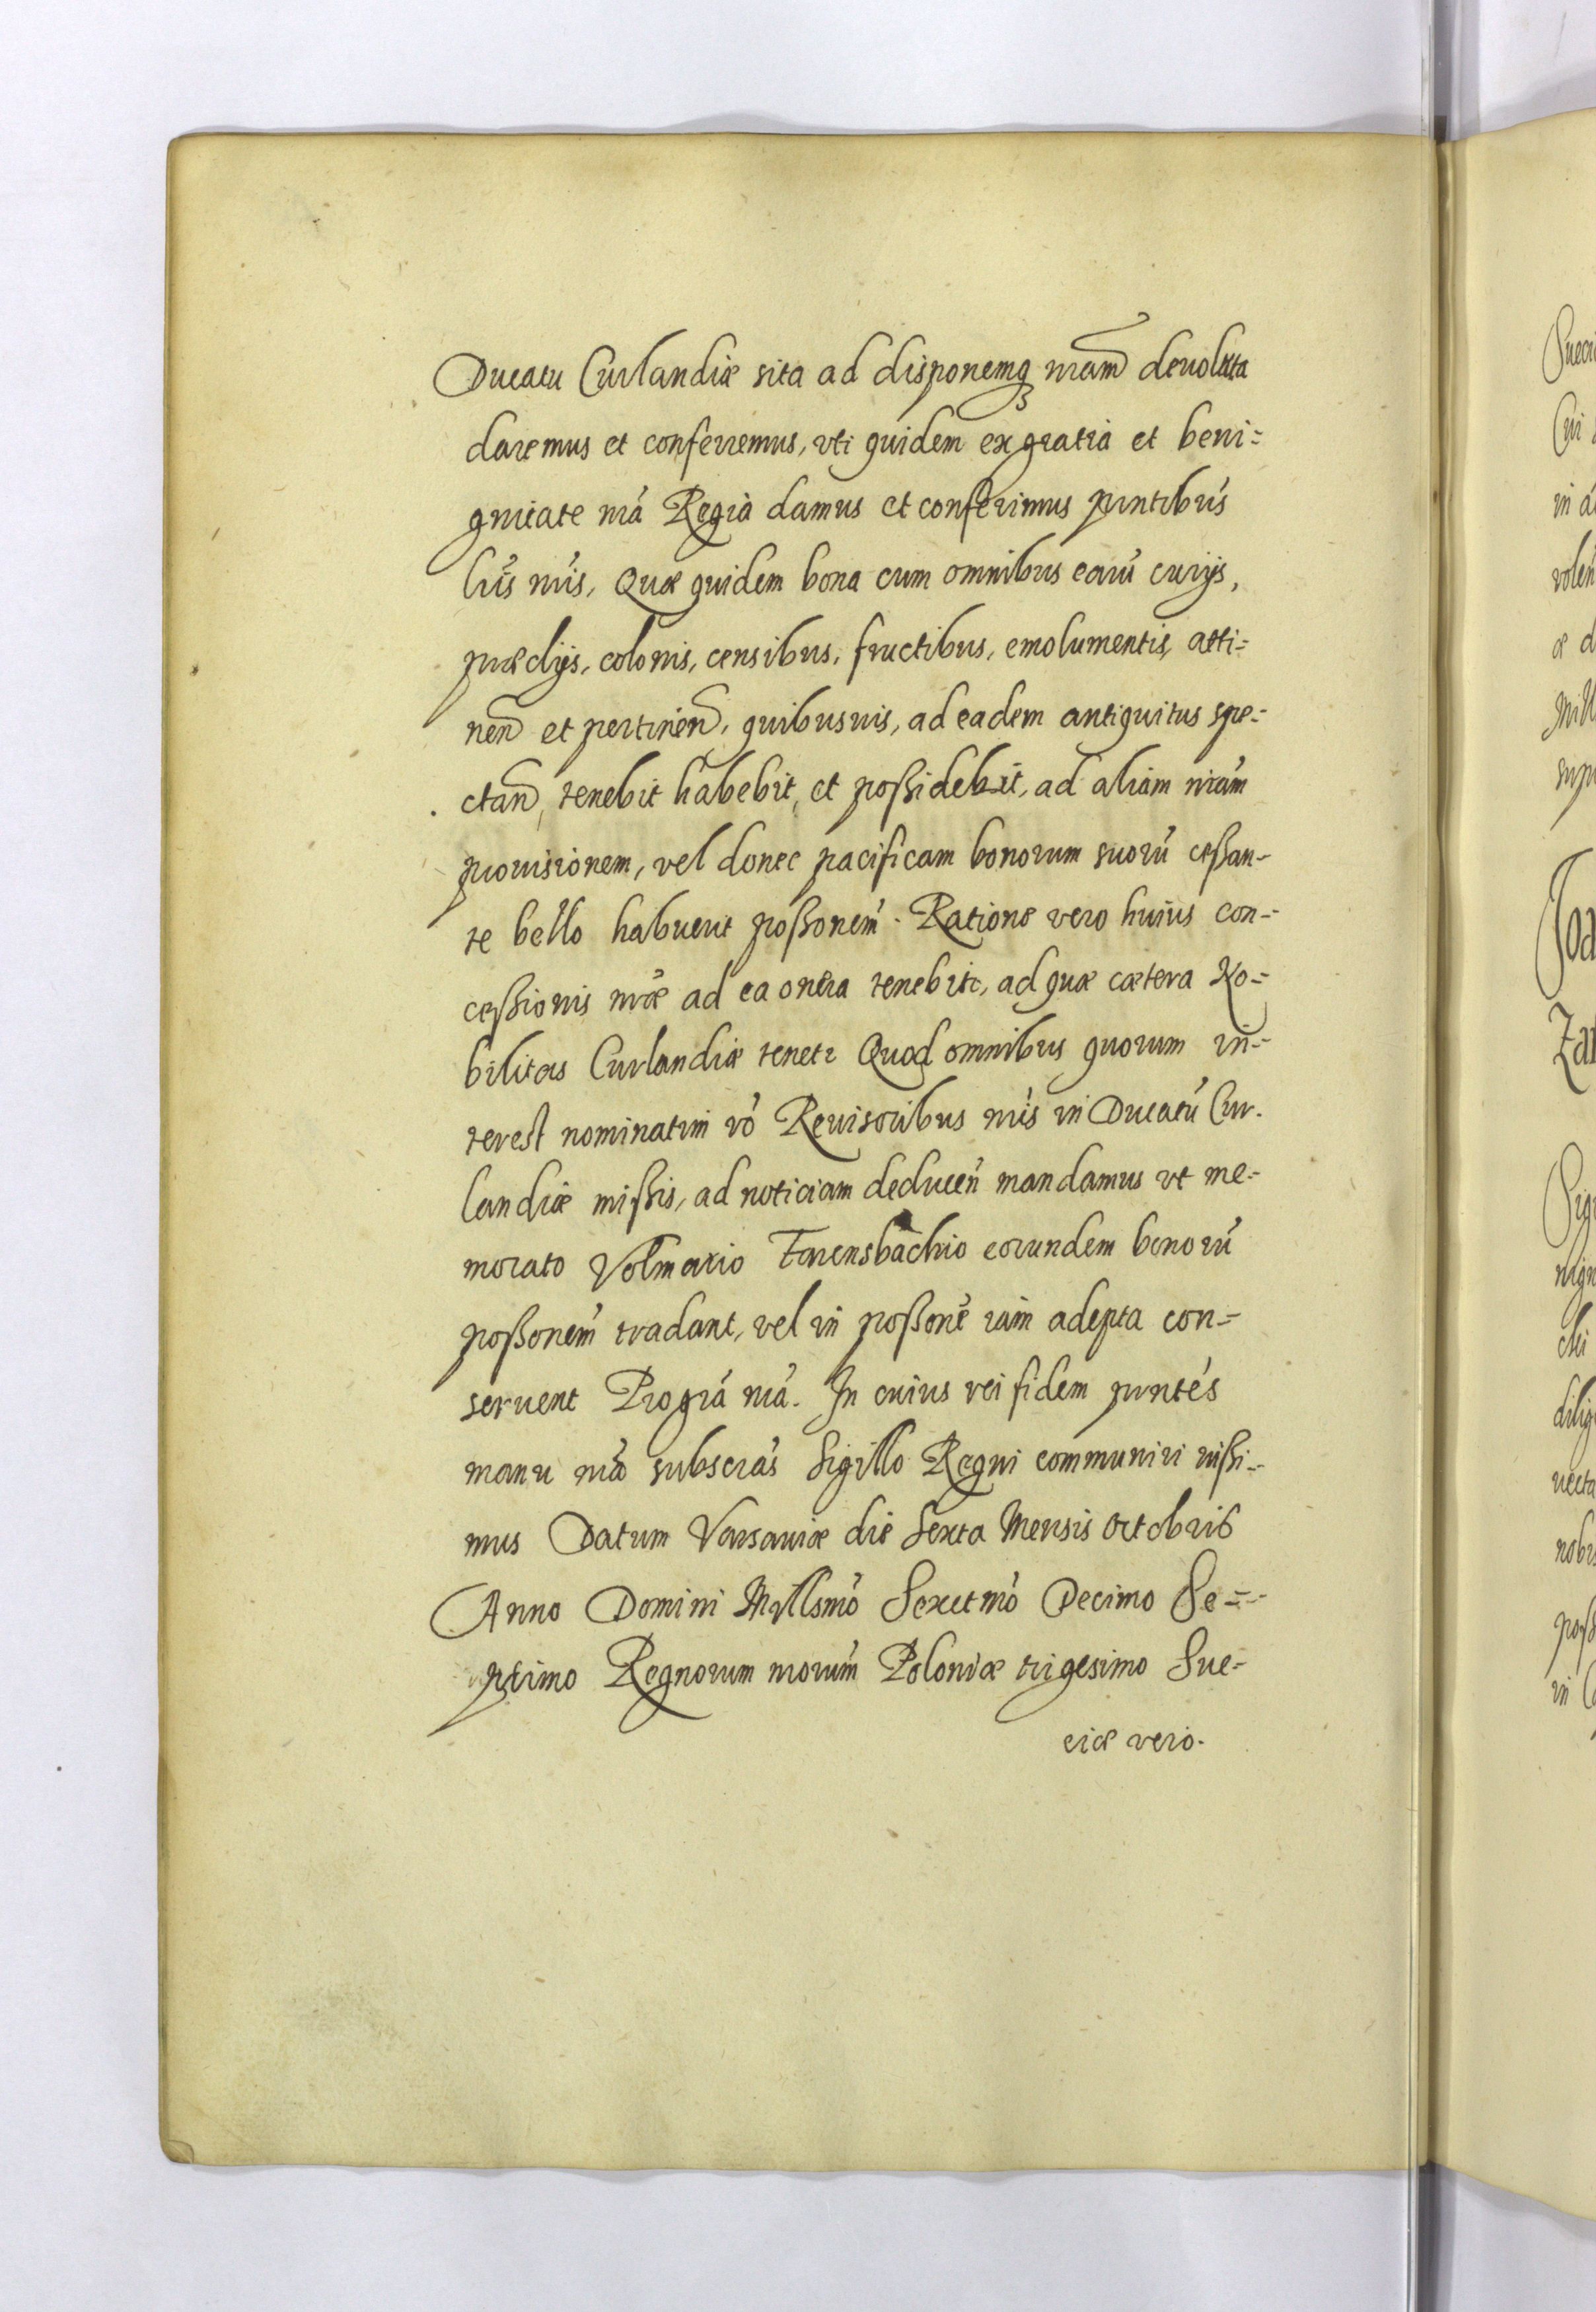 Ducatu Curlandiæ sita ad disponemq nram devoluta
daremus et conferremus, vti quidem ex gratia et beni-
gnitate nrá Regià damus et conferimus pntibus
lris nris, Quæ quidem bona cum omnibus earú curijs,
prædijs, colonis, censibus, fructibus, emolumentis, atti-
nen et pertinen, quibusuis, ad eadem antiquitus spe-
ctan, tenebit habebit, et poßidebit, ad aliam nram
prouisionem, vel donec pacificam bonorum suorú ceßan-
te bello habuerit poßonem. Ratione vero huius con-
ceßionis nræ ad ea onera tenebitr, ad quæ cætera No-
bilitas Curlandiæ tenetr Quod omnibus quorum in-
terest nominatim vó Reuisoribus nris in Ducatú Cur-
landiæ mißis, ad noticiam deducen mandamus vt me-
morato Volmario Farensbachio eorundem bonorú
poßonem tradant, vel in poßone iam adepta con-
seruent Pro grá nrá. In cuius rei fidem pntés
manu nrá subscrás Sigillo Regni communiri iußi-
mus Datum Varsauiæ die Sexta Mensis Octobris
Anno Domini Millsmó Sexctmó Decimo Se-
ptimo Regnorum nrorum Poloniæ trigesimo Sue-
ciæ vero.